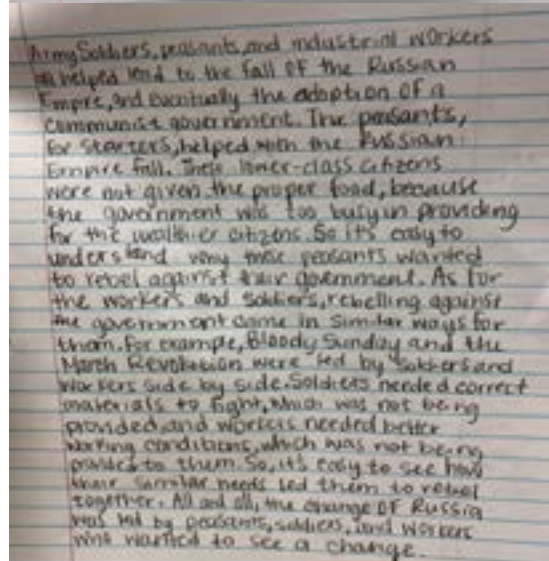 Army Soldiers, peasants, and industrial workers
all helped lead to the fall of the Russian
Empire, and eventually the adoption of a
communist government. The peasants,
for starters, helped with the Russian
Empire fall. These lower-class citizens
were not given the proper food, because
the government was too busy in providing
for the wealthier citizens. So it's easy to
understand why these peasants wanted
to rebel against their government. As for
the workers and soldiers, rebelling against
the government came in similar ways for
them. For example, Bloody Sunday and the
March Revolution were led by soldiers and
workers side by side. Soldiers needed correct
materials to fight, which was not being
provided, and workers needed better
working conditions, which was not being
to them. So, it's easy to see how
their similar needs led them to rebel
together. All and all, the change of Russia
was led by peasants, soldiers, and workers
who wanted to see a change.